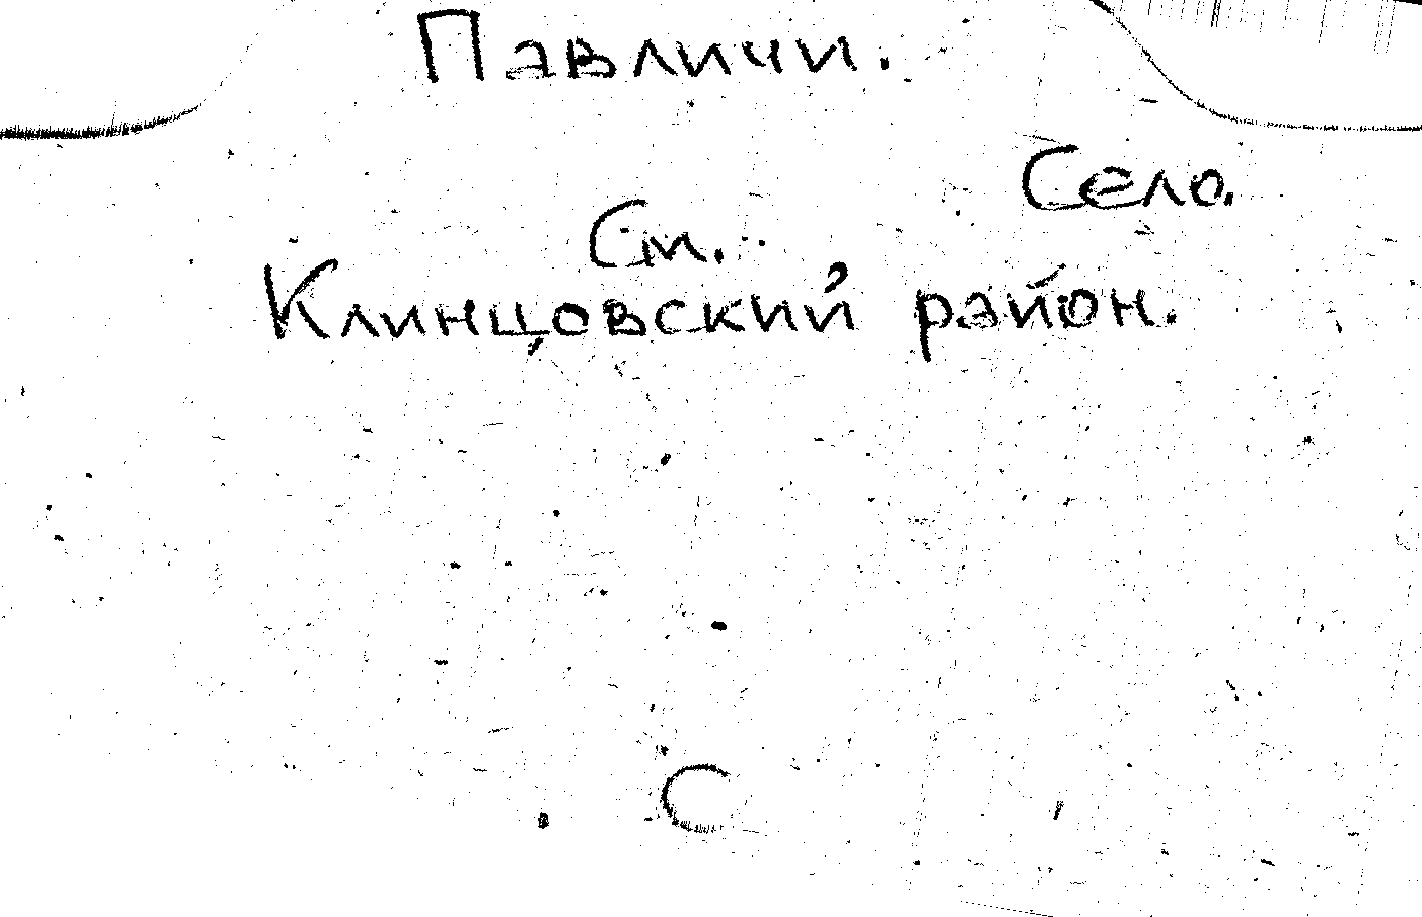 Павличи.
Село.
См.
Клинцовский район.